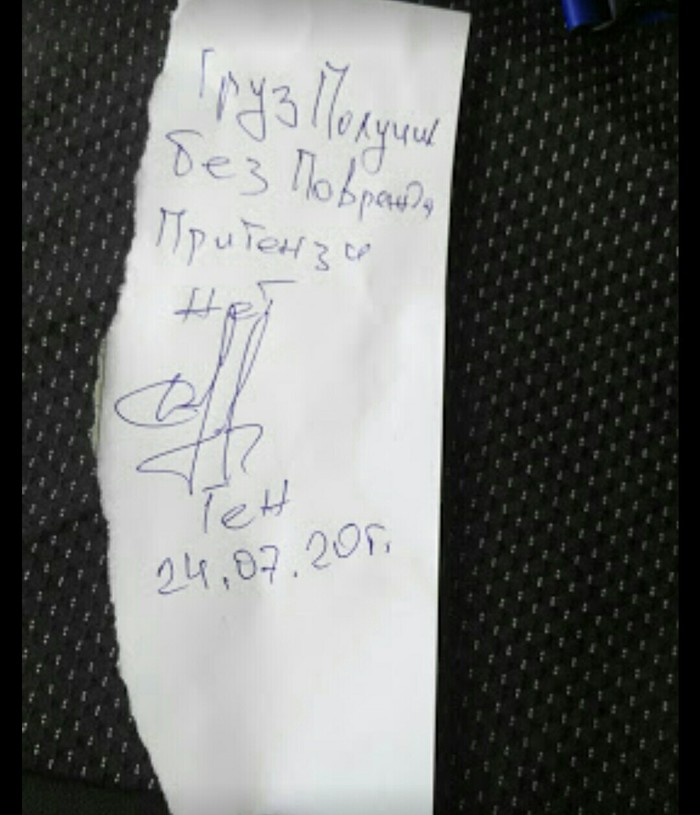 Груз Получил
без Поврежд
Притензи
Нет
Ген
24.07.20г.